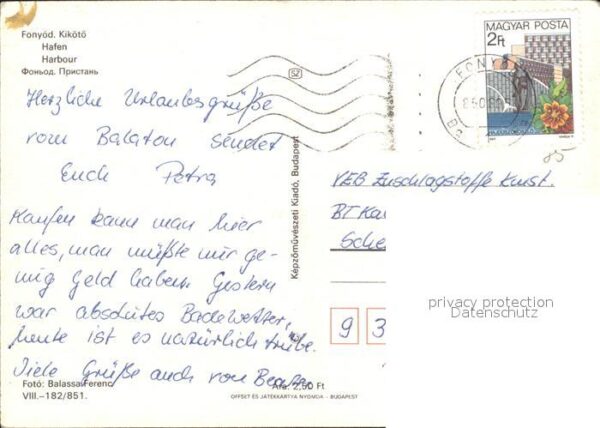 Fonyód. Kikötő
Hafen
Harbour
Фоньод. Пристань
MAGYAR POSTA
2Ft
FONYÓD
Herzliche Urlaubsgrüße
vom Balaton sendet
Euch Petra
Kaufen kann man hier
alles, man müßte nur ge-
nig Geld haben. Gestern
war absolutes Badewetter,
heute ist es natürlich trübe.
Viele Grüße auch von
Képzőművészeti Kiadó, Budapest
85
VEB Zuschlagstoffe Karst.
BT
Sche
privacy protection
Datenschutz
9 3
Fotó: Balassa Ferenc
VIII.–182/851.
Ára: 2,50 Ft
OFFSET ÉS JÁTÉKKÁRTYA NYOMDA – BUDAPEST